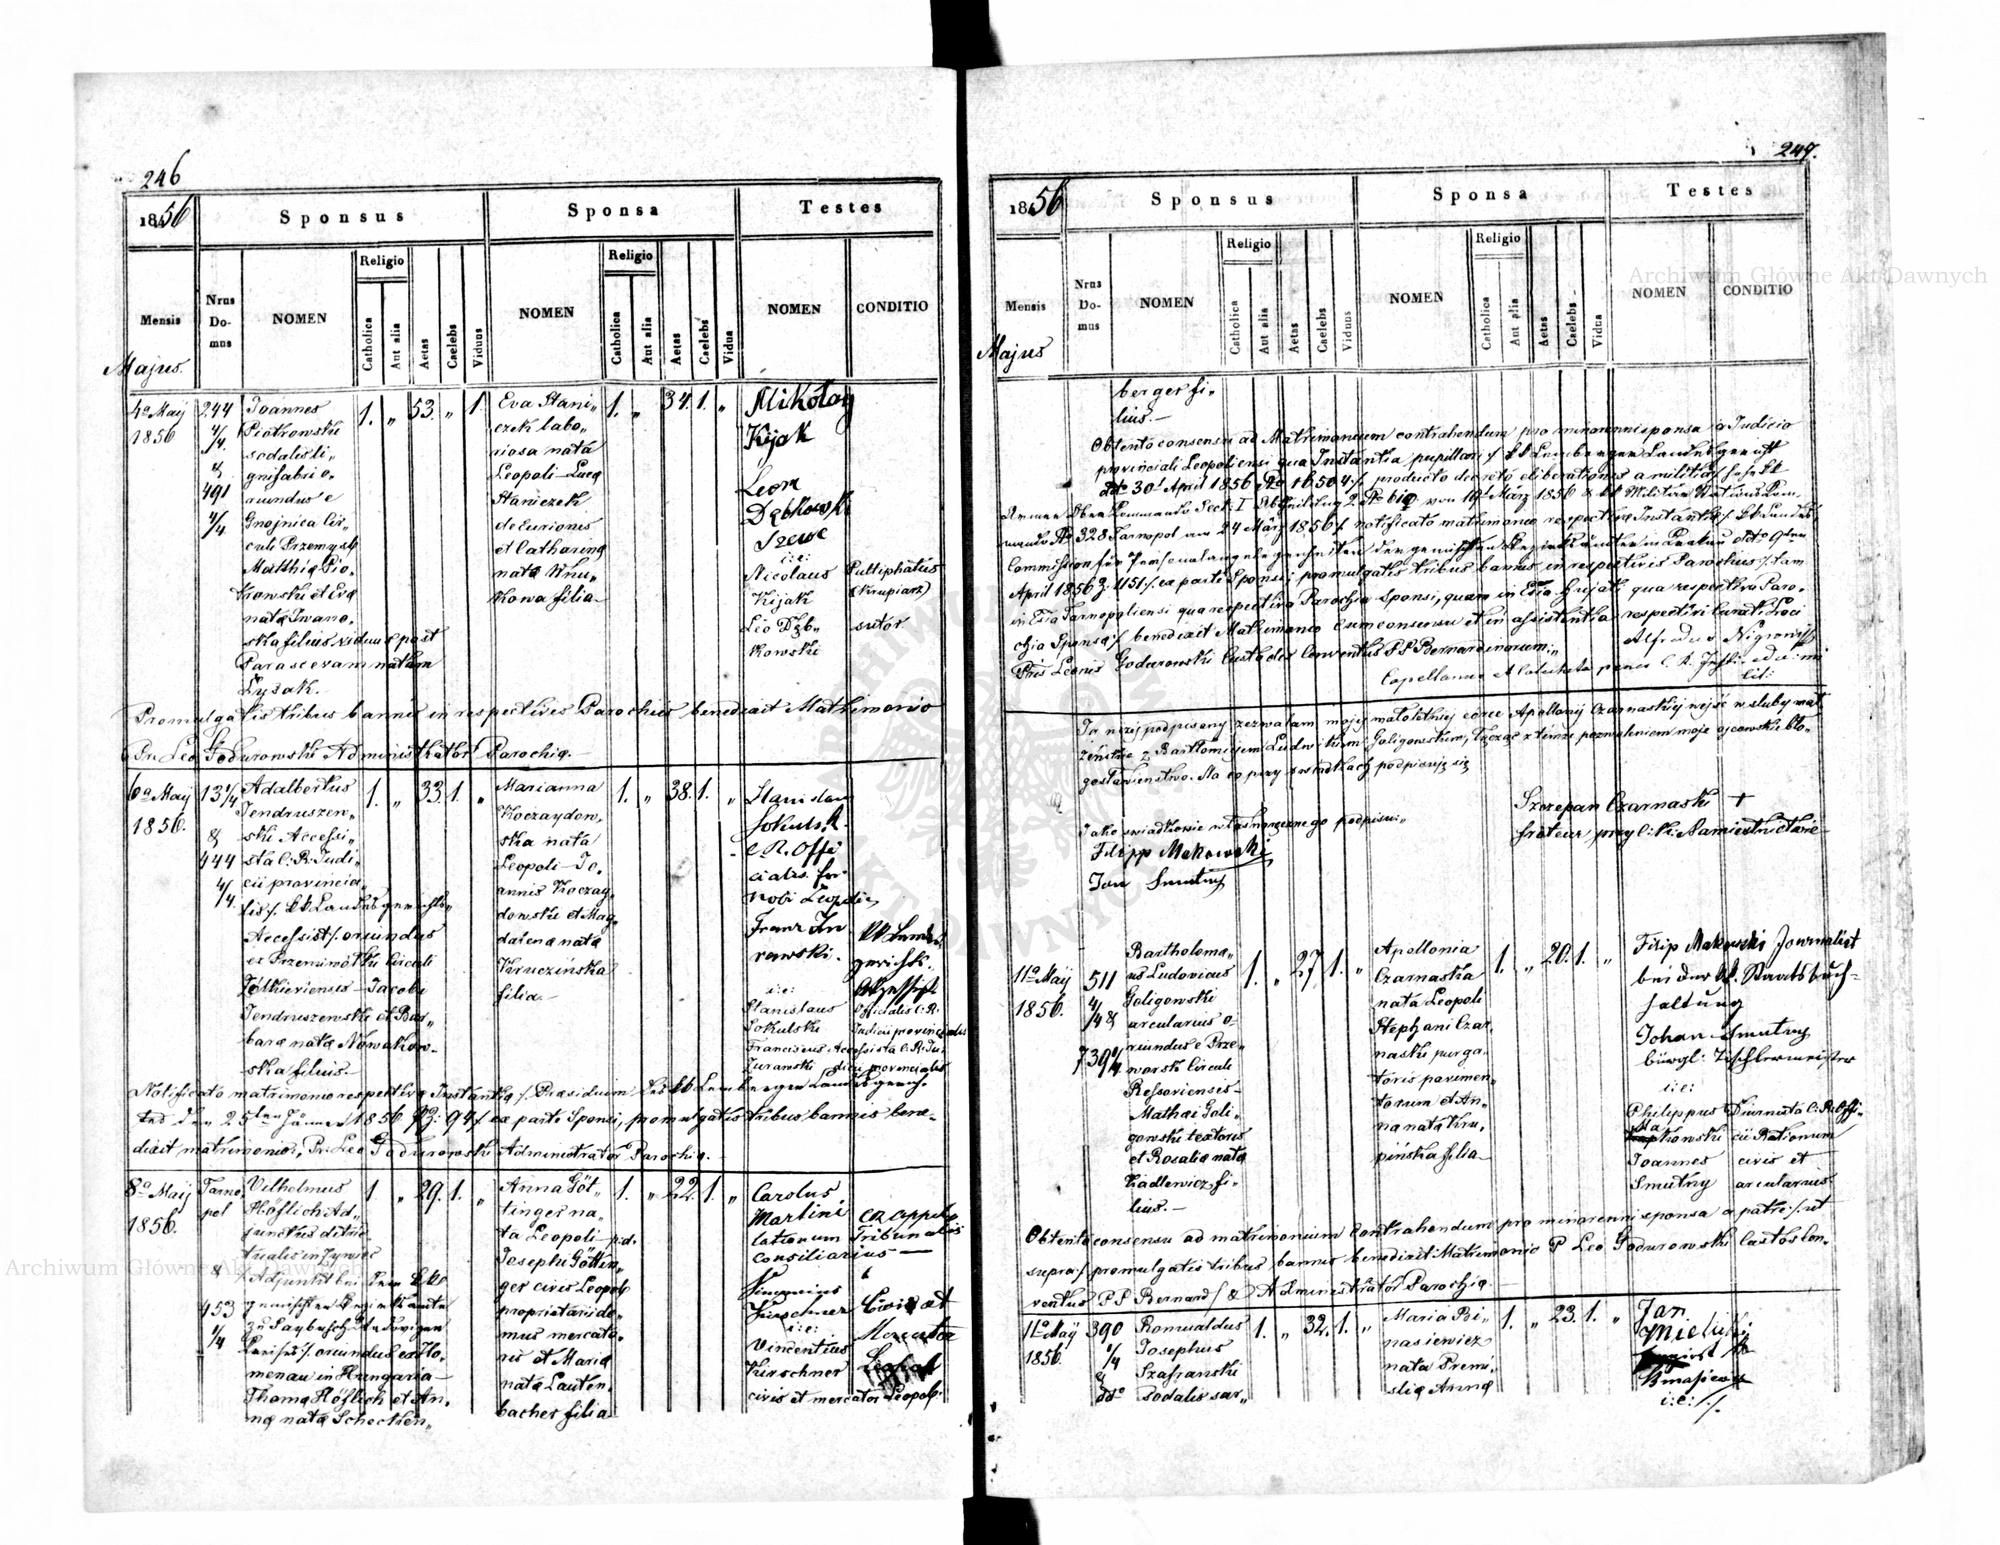 246
1856
Sponsus
Sponsa
Testes
Mensis
Nrus Do- mus
NOMEN
Religio
Catholica
Aut alia
Aetas
Caelebs
Viduus
NOMEN
Religio
Catholica
Aut alia
Aetas
Caelebs
Vidua
NOMEN
CONDITIO
Majus.
4a Maij
1856
244
4/4.
&
491
4/4.
Joannes
Piotrowski
sodalis li„
gnifabri o„
riundus e
Gnojnica Cir„
culi Przemysl.
Matthia Pio„
trowski et Eva
nata Iwano„
ska filius viduus post
Parascevam natam
Łysak.
1. „ 53. „ 1.
Eva Stani„
czek labo„
riosa nata
Leopoli Luca
Staniczek
decuriones
et Catharina
nata Whu„
kowa filia
1. „ 34. 1. „
Mikołay
Kijak
Leon
Dąbkowski
Szewc
i: e:
Nicolaus
Kijak
Leo Dąb„
kowski
Pultiphatus
(Krupiarz)
sutor
Promulgatis tribus bannis in respectives Parochiis benedixit Mathimonio
Pr. Leo Godurowski Administrator Parochiae.
6a Maij
1856.
13 1/4
&
444
4/4.
Adalbertus
Jendruszew„
ski Accessi„
sta C. R. Judi„
cii provincia„
lis /. kk Landesgerichts„
Accessist /. oriundus
ex Przemiwółki Circuli
Żółkieviensis Jacobi
Jendruszewski et Bar„
bara nata Nowakow„
ska filius.
1. „ 33. 1. „
Marianna
Koczaydow„
ska nata
Leopoli Jo„
annis Koczay„
dowski et Mag„
dalena nata
Kruczińska
filia.
1. „ 38. 1. „
Stanislaus
Sokulski
C. R. Offi
cialis for
nobi Leopoli
Franz Zu
rawski.
kk Landes„
gerichts.
Akzessist
i: e:
Stanislaus
Sokulski
Franciscus
Zurawski
Officialis C. R.
Judicii provincialis
Accessista C. R. Ju„
dicii provincialis
Notificato matrimonio respectiva Instantia /. Praesidium des kk Lemberger Landesgerich„
tes den 25ten Jänner 1856 Pz: 94 /. ex parte Sponsi, promulgatis tribus bannis bene„
dixit matrimonio, Pr. Leo Godurowski Administrator Parochiae.
8a Maij
1856.
Tarno„
pol
&
453
1/4
Vilhelmus
Höflich Ad„
junctus distric„
tualis in Żywiec
Adjunkt bei dem kk
gemischten Bezirksamte
zu Saybusch
oriundus ex Ho„
menau in Hungaria
Thoma Höflich et An„
na nata Schecken„
1. „ 29. 1. „
Anna Göt„
tinger na„
ta Leopoli p. d.
Josephi Göttin„
ger civis Leopol.
proprietarii do„
mus mercato„
ris et Maria
nata Lauten„
bacher filia
1. „ 22. 1. „
Carolus
Martini
lationum
consiliarius
CR Appel„
Tribunalis
Vincenius
Kirschner
i: e:
Vincentius
Kirschner
civis et mercator Leopol.
247.
1856
Sponsus
Sponsa
Testes
Mensis
Nrus Do- mus
NOMEN
Religio
Catholica
Aut alia
Aetas
Caelebs
Viduus
NOMEN
Religio
Catholica
Aut alia
Aetas
Caelebs
Vidua
NOMEN
CONDITIO
Majus
berger fi„
lius.
Obtento consensu ad Matrimonium contrahendum pro minorenni sponsa a Judicio
provinciali Leopoliensi qua Instantia pupillari /. kk Lemberger Landesgericht
ddo 30t April 1856 No 16504 /. producto decreto deliberationis a militia
Armee Ober Commando Sect: I Abtheilung 2 No 619 von 19t März 1856
No 328 Tarnopol am 24 März 1856 /. notificato matrimonio respectiva Instantia /. kk Landes
Commission für Personalangelegenheiten der gemischten Bezirksämter in Krakau ddto 9ten
April 1856 Z. 1151 /. ex parte Sponsi, promulgatis tribus bannis in respectivis Parochiis /. tam
in Tarnopoliensi qua respectiva Parochia Sponsi, quam in qua respectiva Paro„
chia Sponsa /. benedixit Matrimonio cum consensu et in assistentia respectivi Curati Loci
Pris Leonis Godurowski Custodis Conventus PP Bernardinorum.
Ja niżej podpisany zezwalam mojéj małoletniéj córce Apollonij Czarnaskiej wejść w śluby mał„
żeńskie z Bartłomiejem Ludwikiem Goligowskim, łącząc z tymże pozwoleniem moje ojcowskie bło„
gosławieństwo. Na co przy świadkach podpisuję się
Szczepan Czarnaski +
froteur przy C: k: Namiestnictwie
Jako świadkowie własnoręcznego podpisu„
Filipp Makowski
Jan Smutny
11a Maij
1856.
511
4/4 &
739 4/4
Bartholoma„
us Ludovicus
Goligowski
arcularius o„
riundus e Prze„
worsk Circuli
Ressoviensis
Mathai Goli„
gowski textoris
et Rosalia nata
Kadlewicz fi„
lius.
1. „ 27. 1. „
Apollonia
Czarnaska
nata Leopoli
Stephani Czar„
naski purga„
toris pavimen„
torum et An„
na nata Kru„
pińska filia
1. „ 20. 1. „
Filip Makowski Journalist
bei der kk. Staatsbuch=
haltung
Johan Smutny
bürgl: Tischlermeister
i: e:
Philippus
Makowski
Joannes
Smutny
Diurnista C: R. Offi„
cii Rationum
civis et
arcularius
Obtento consensu ad matrimonium contrahendum pro minorenni sponsa a patre /. ut
supra /. promulgatis tribus bannis benedixit Matrimonio P Leo Godurowski Custos Con„
ventus PP Bernard /. & Administrator Parochiae
11a Maij
1856.
390
4/4
&
ddo
Romualdus
Josephus
Szafranski
sodalis sar„
1. „ 32. 1. „
Maria Bi„
nasiewicz
nata Premi„
slia Anna
1. „ 23. 1. „
Jan
i: e: /.
Archiwum Główne Akt Dawnych
Archiwum Główne Akt Dawnych